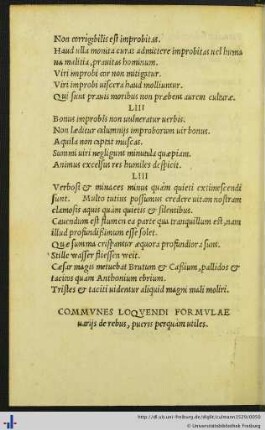 Non corrigibilis est improbitas.
Haud ulla monita curat admittere improbitas uel huma
na malitia, prauitas hominum.
Viri improbi cor non mitigatur.
Viri improbi uiscera haud molliuntur.
Qui sunt prauis moribus non præbent aurem culturæ.
LIII
Bonus improbis non uulneratur uerbis.
Non læditur calumnijs improborum uir bonus.
Aquila non captat muscas.
Summi uiri negligunt minutula quæpiam.
Animus excelsus res humiles despicit.
LIIII
Verbosi & minaces minus quàm quieti extimescendi
sunt. Multo tutius possumus credere uitam nostram
clamosis aquis quàm quietis & silentibus.
Cauendum est flumen ea parte qua tranquillum est, nam
illud profundissimum esse solet.
Quæ summa crispantur æquora profundiora sunt.
Stille wasser fliessen weit.
Cæsar magis metuebat Brutum & Cassium, pallidos &
tacitos quàm Anthonium ebrium.
Tristes & taciti uidentur aliquid magni mali moliri.
COMMVNES LOQVENDI FORMVLAE
uarijs de rebus, pueris perquàm utiles.
http://dl.ub.uni-freiburg.de/diglit/culmann1529/0050
© Universitätsbibliothek Freiburg